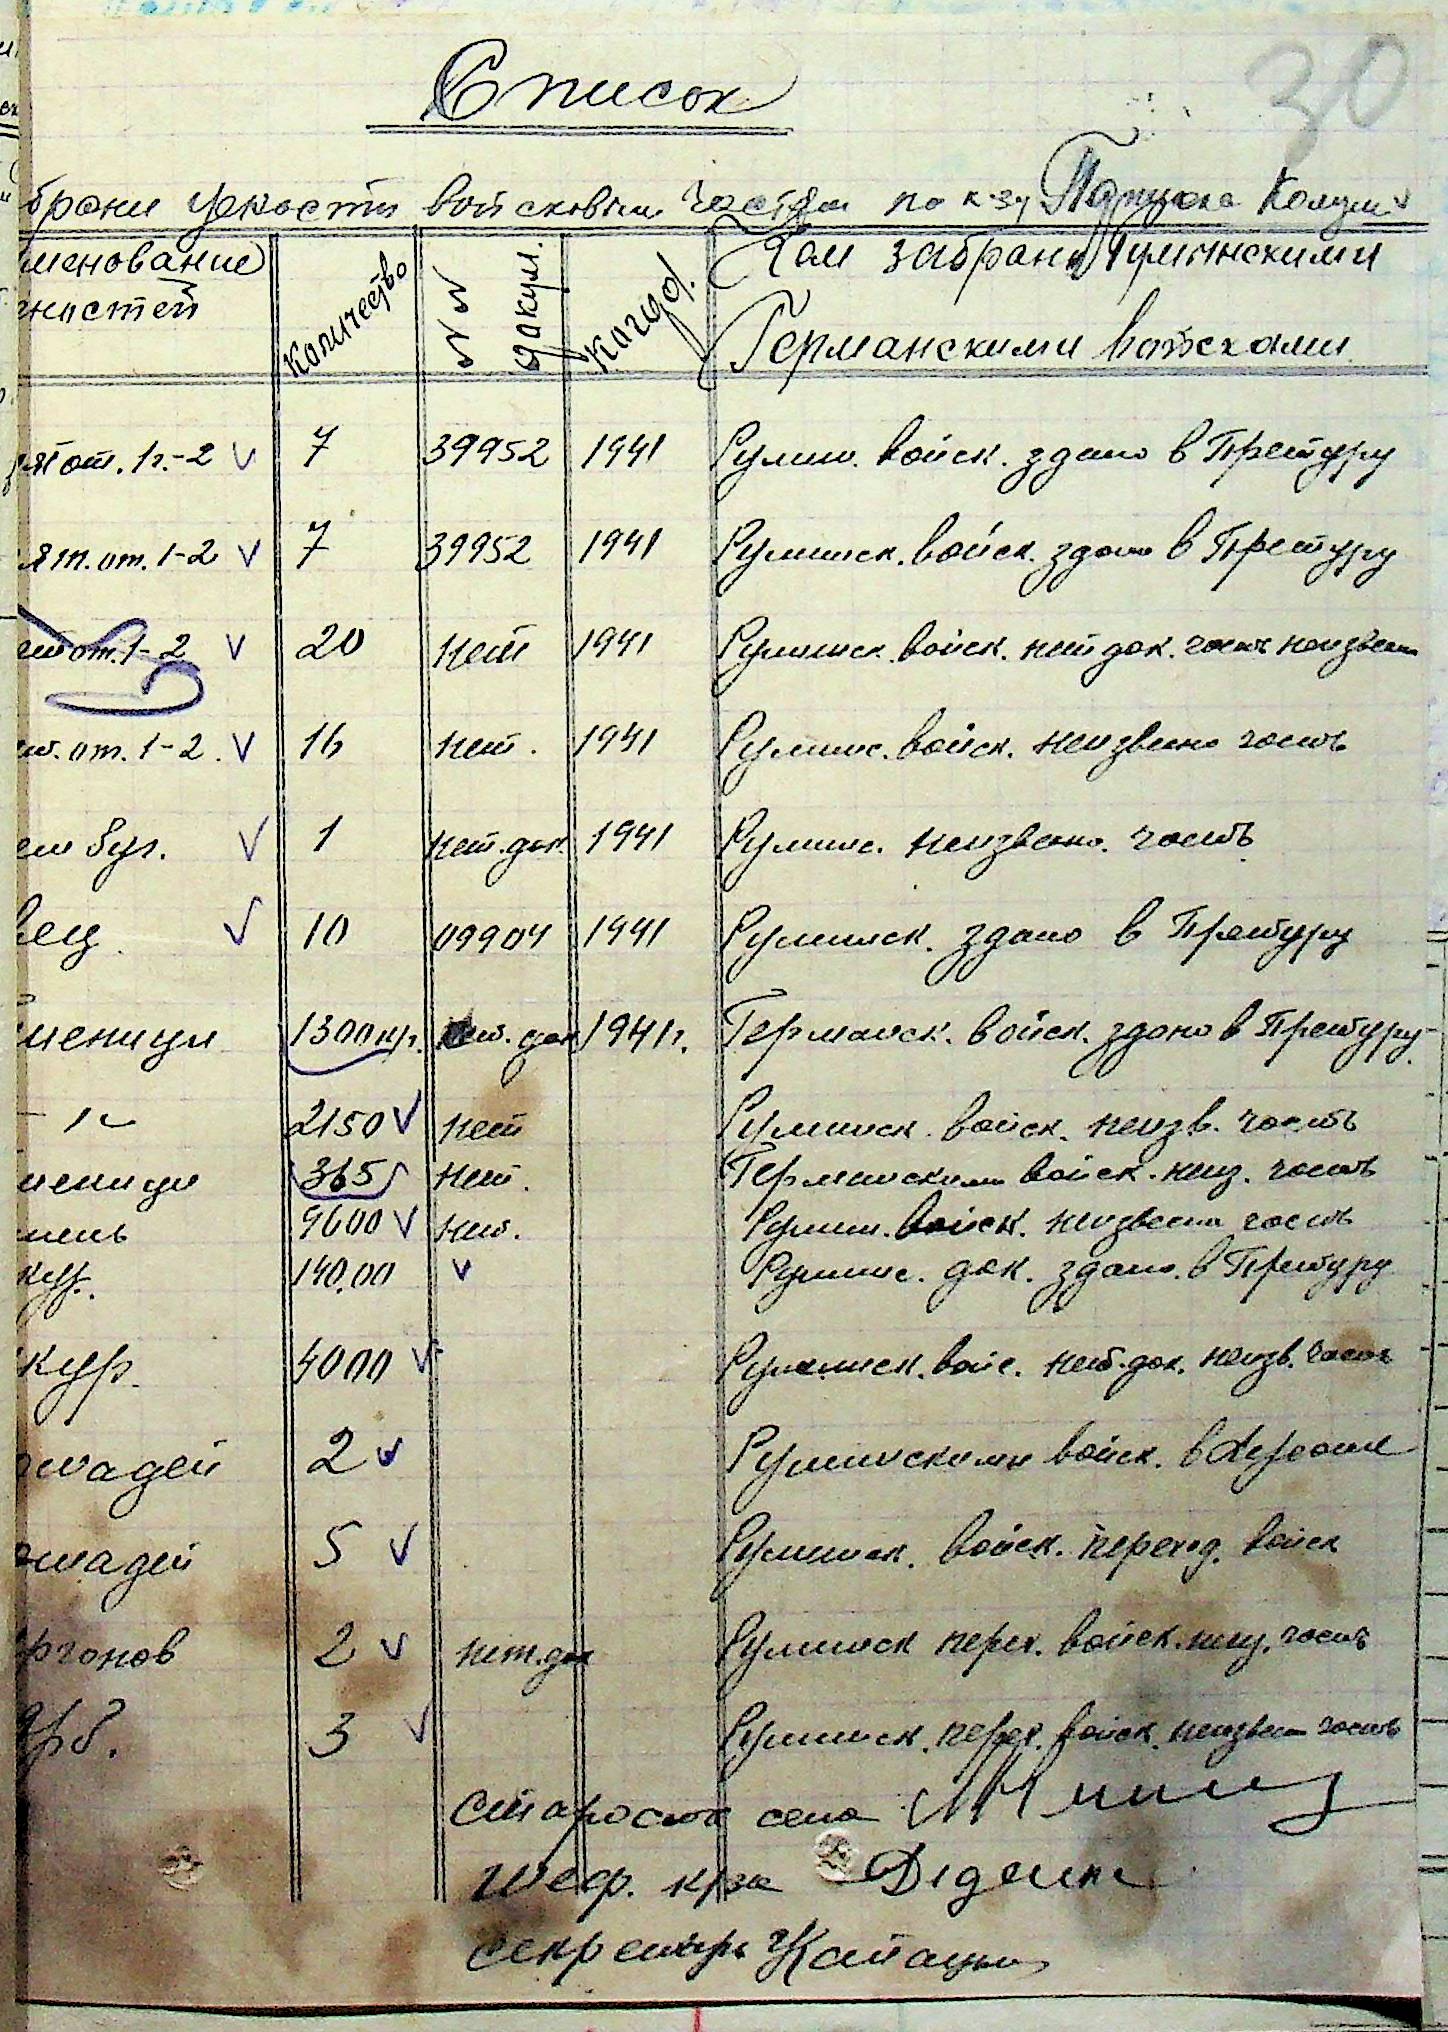 30
Список
брани цености войсковым частям по к-зу Парижска Комуна
менование
ностей
Количество
№ №
докум.
Когда.
Кем забрано Румынскими
Германскими войсками
ят от. 1г.-2 7 39952 1941 Румын. войск. здано в Претуру
ят. от. 1-2 7 39952 1941 Румынск. войск. здано в Претуру
от. 1-2 20 нет 1941 Румынск. войск. нет док. часть неизвестн
от. 1-2 16 нет. 1941 Румынс. войск. неизвесно часть
буг. 1 нет. док. 1941 Румынс. неизвесно. часть
вец 10 09904 1941 Румынск. здано в Претуру
шеници 1300 кг. нет. док 1941г. Германск. войск. здано в Претуру.
-"- 2150 нет Румынск. войск. неизв. часть
шеници 365 нет. Германскими войск. неиз. часть
мень 9600 нет. Румын. войск. неизвесна часть
кур. 140,00 Румынс. док. здано. в Претуру
кур. 4000 Румынск. войс. нет. док. неизв. часть
шадей 2 Румынскими войск. в
ошадей 5 Румынск. войск. переход. войск
ргонов 2 нет. док Румынск перех. войск. неиз. часть
3 Румынск. перех. войск. неизвесн часть
Староста села
Шеф. к/за
Секретарь